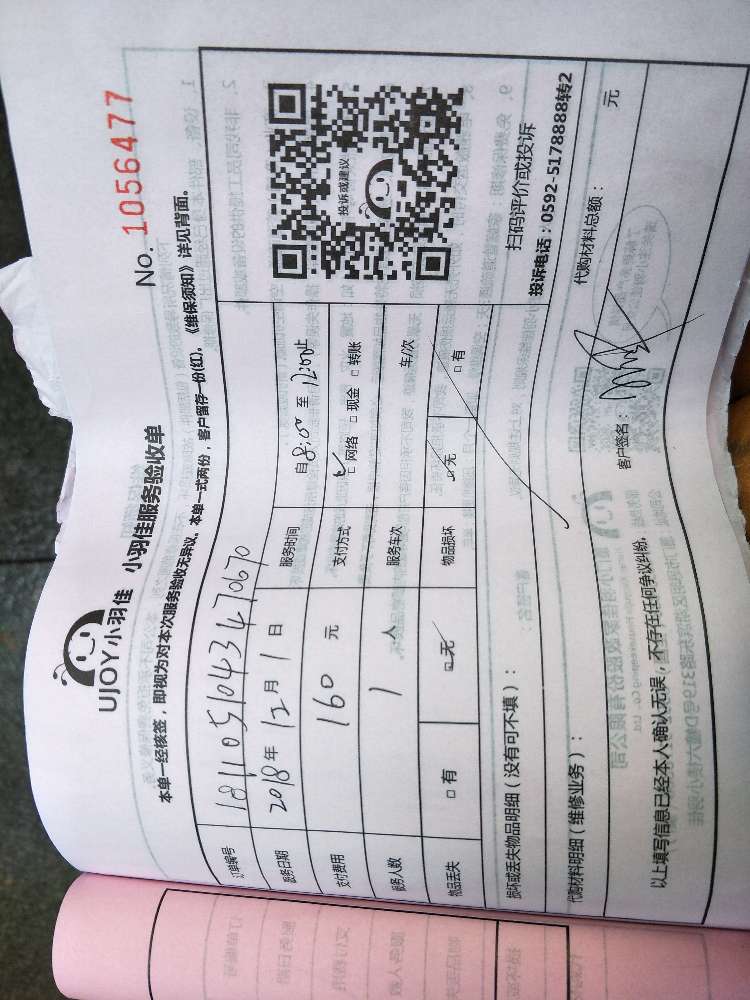 UJOY小羽佳 小羽佳服务验收单
No. 1056477
本单一经核签，即视为对本次服务验收无异议。本单一式两份，客户留存一份(红)。《维保须知》详见背面。
订单编号 181105104347067 0
服务日期 2018年12月1日 服务时间 自8:00至12:00止
支付费用 160元 支付方式 □网络 □现金 □转账
服务人数 1人 服务车次 车/次
物品丢失 □有 □无 物品损坏 □无 □有
投诉或建议
扫码评价或投诉
投诉电话：0592-5178888转2
损坏或丢失物品明细（没有可不填）：
代购材料明细（维修业务）： 代购材料总额： 元
以上填写信息已经本人确认无误，不存在任何争议纠纷。 客户签名：